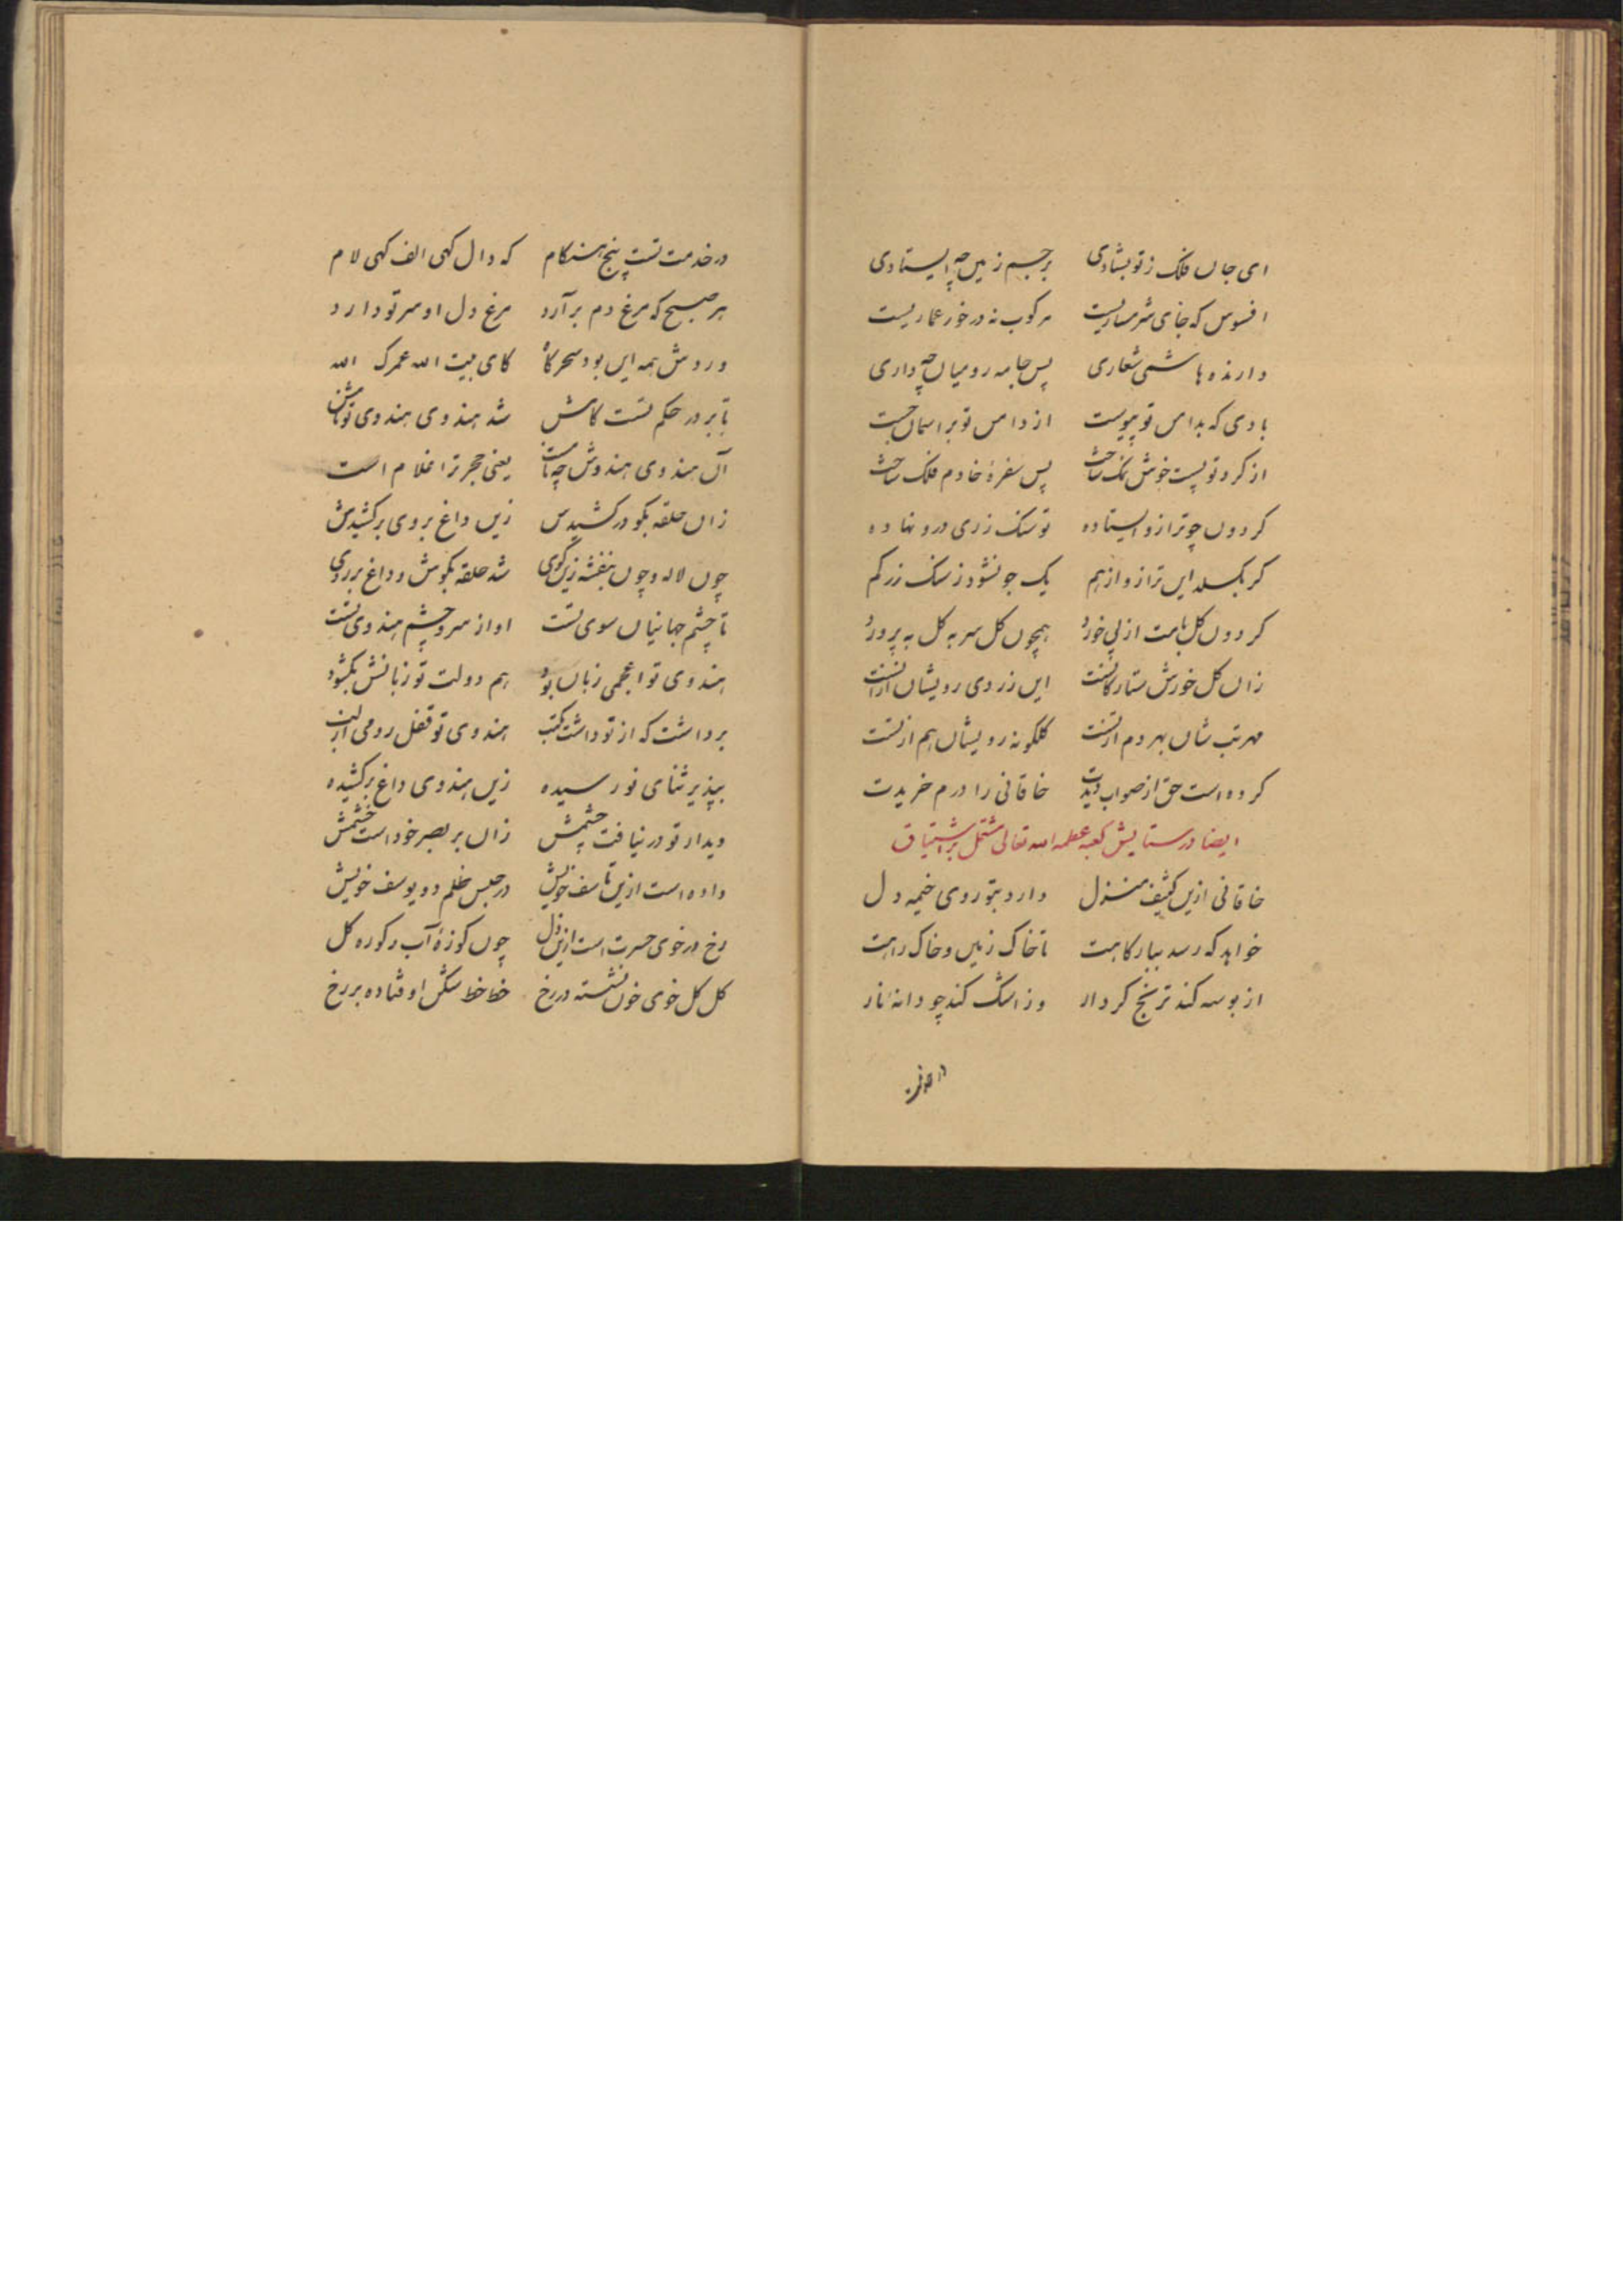 ای جان فلک ز تو بشادی   بر جسم زمین چه ایستادی
افسوس که جای شرمساریست   مرکوب نه در خور عماریست
دارنده هاشمی شعاری   پس جامه رومیان چه داری
بادی که بدامن تو پیوست   از دامن تو بر اسمان جست
از کرد تو پست خوش نمک ساخت   پس سفرهٔ خادم فلک ساخت
کردون چو ترازو ایستاده   تو سنک زری درو نهاده
کر بکسلد این ترازو از هم   یک جو نشود ز سنک زر کم
کردون کل بامت از پی خورد   همچون کل سر به کل به پرورد
زان کل خورش ستارکانست   این زردی رویشان ازانست
مهر تب شان بهر دم از تست   کلکونه رویشان هم از تست
کرده است حق از صواب دیدت   خاقانی را درم خریدت
ایضا در ستایش کعبه عظمه الله تعالی مشتمل بر اشتیاق
خاقانی ازین کثیف منزل   دارد بتو روی خیمه دل
خواهد که رسد ببارکاهت   تا خاک زمین و خاک راهت
از بوسه کند ترنج کردار   وز اشک کند چو دانه نار
در خدمت تست پنج هنکام   که دال کهی الف کهی لام
هر صبح که مرغ دم برآرد   مرغ دل او سر تو دارد
وردش همه این بود سحرکاه   کای بیت الله عمرک الله
تا بر در حکم تست کامش   شد هندوی هندوی تو نامش
آن هندوی هندوش چه نامست   یعنی حجر ترا غلام است
زان حلقه بکو در کشیدس   زین داغ بروی برکشیدش
چون لاله و چون بنفشه زین کوی   شد حلقه بکوش و داغ بر روی
تا چشم جهانیان سوی تست   او از سر و چشم هندوی تست
هندوی تو اعجمی زبان بود   هم دولت تو زبانش بکشود
برداشت که از تو داشت مکتب   هندوی تو قفل رومی از لب
بپذیر ثنای نو رسیده   زین هندوی داغ برکشیده
دیدار تو در نیافت چشمش   زان بر بصر خود است خشمش
داده است ازین تاسف خویش   در حبس ظلم دو یوسف خویش
رخ در خوی حسرت است ازین دل   چون کوزهٔ آب و کوره کل
کل کل خوی خون نشسته در رخ   خط خط شکن اوفتاده بر رخ